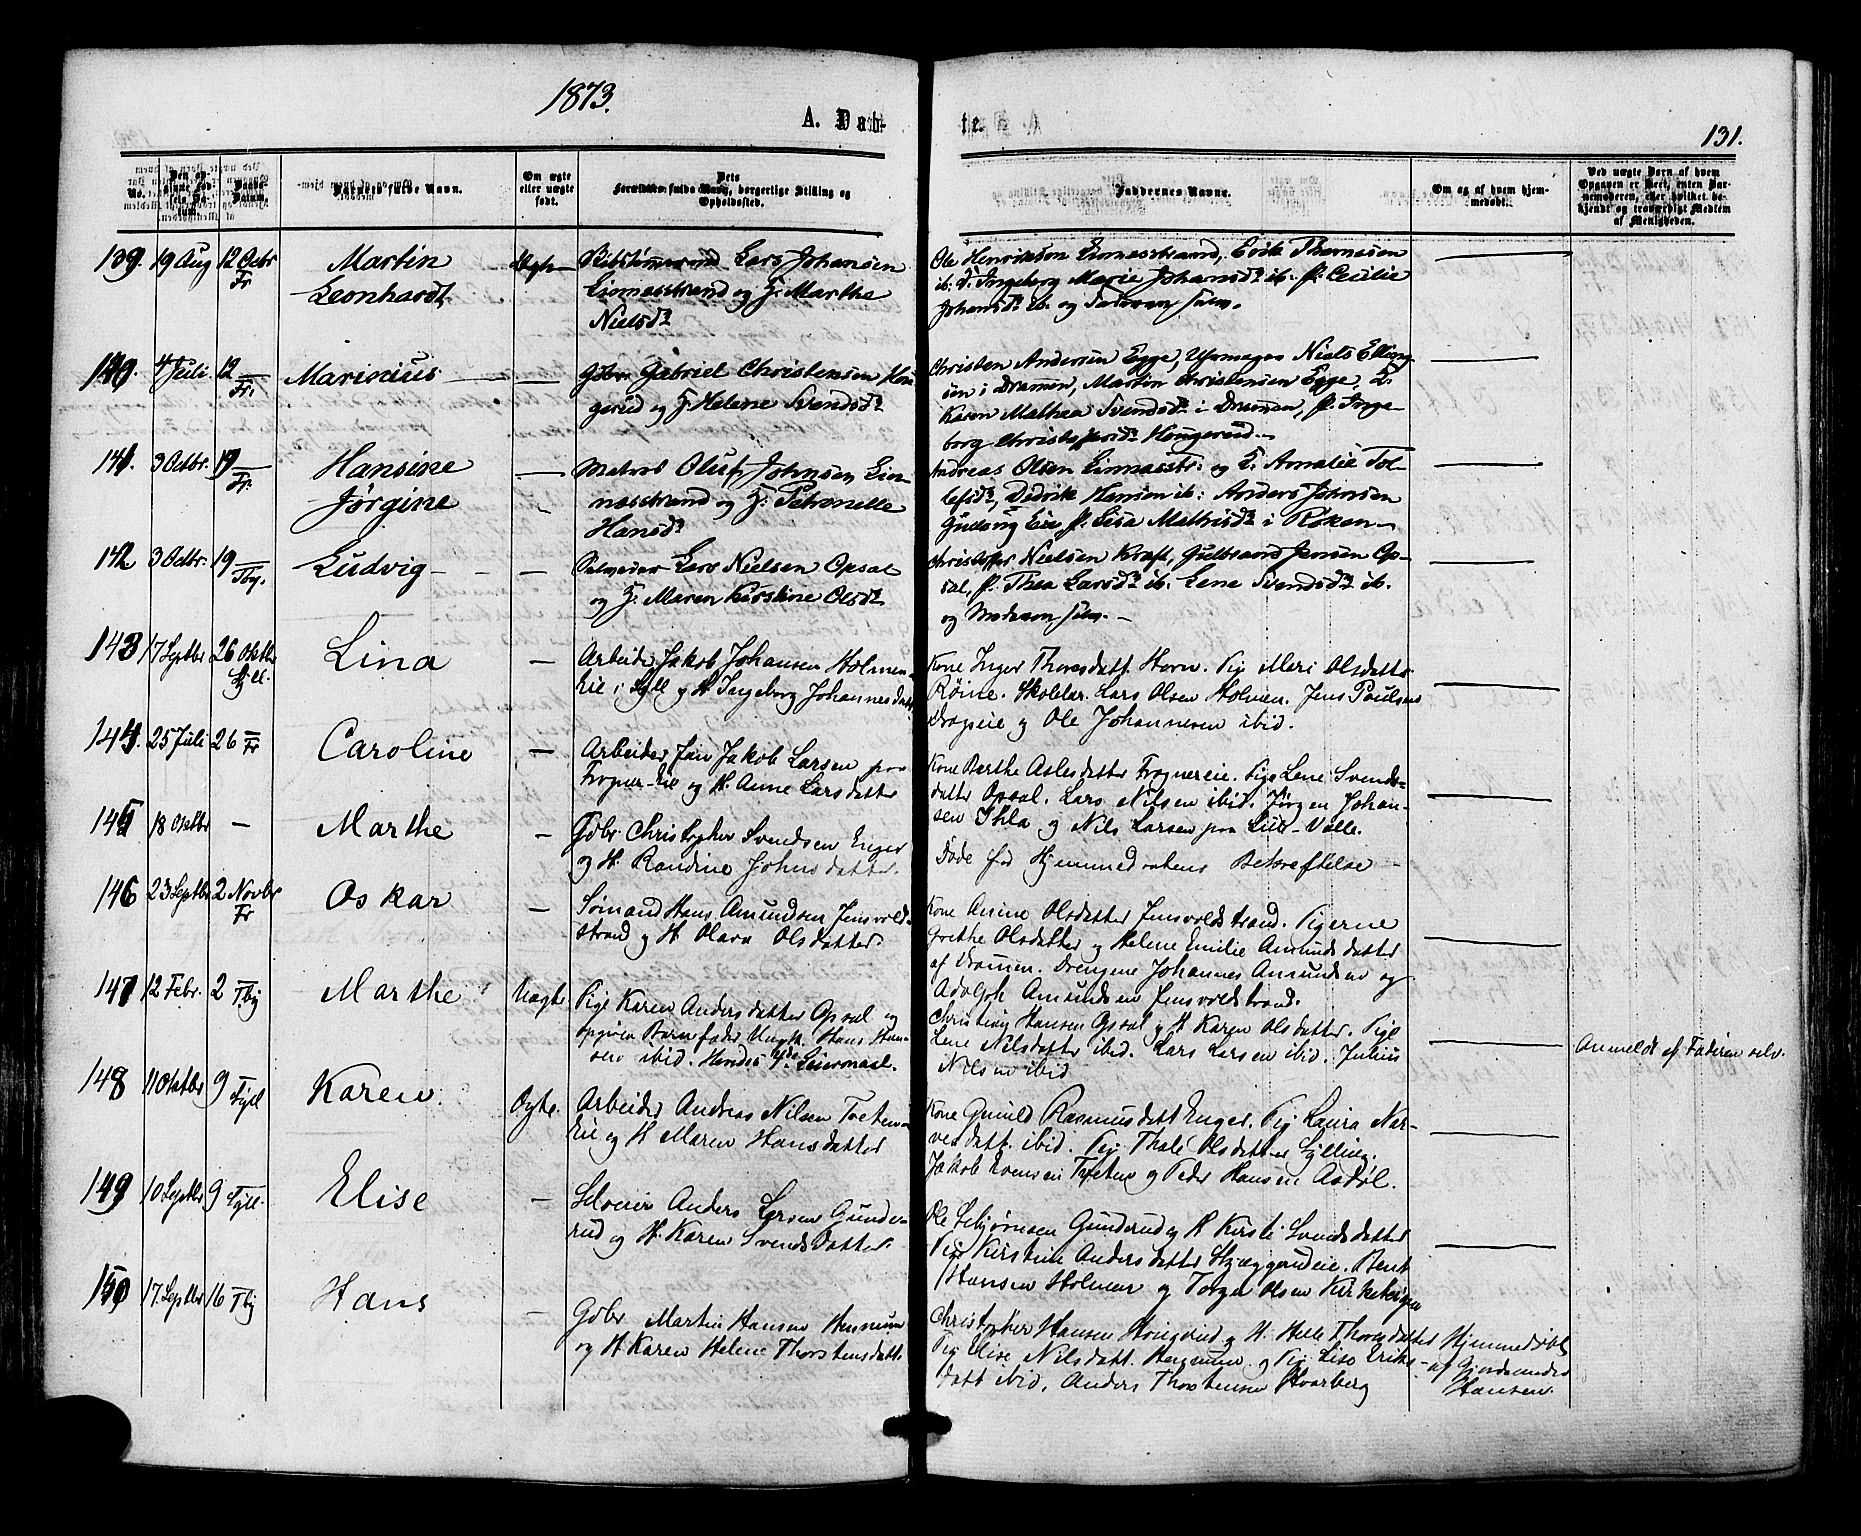 1873.
A. Dab-
te.
131.
No.
Barnets fulde Navn.
Om ægte eller uægte født.
Forældres fulde Navn, borgerlige Stilling og Opholdssted.
Faddernes Navne.
Om og af hvem hjemmedøbt.
Ved uægte Barn af hvem Opgaven er skeet, enten Barnemoderen, eller hvilket bekjendt og troværdigt Medlem af Menigheden.
139. 19 Aug 12 Octbr Fr Martin Leonhardt
Lars Johansen
Liernesstrand og H. Marthe
Nielsdr
Ole Henriksen Liernesstrand, Thomassen
ib. P. Ingeborg Marie Johansdr ib. P. Cecilie
Johansdr ib. og Faderen selv.
140. 4 Juli 12 Fr. Marinius
Gbr Gabriel Christensen Hougerud og H. Helene Svendsdr
Christen Andersen Egge, Uhrmager Niels Ellingsen i Drammen, Martin Christensen Egge, K.
Karen Mathea Svendsdr i Drammen, P. Ingeborg Christophersdr Hougerud.
141. 3 Octbr. 19 Fr. Hansine Jørgine
Matros Oluf Johnsen Liernesstrand og H. Petronelle
Hansdr
Andreas Olsen Liernesstr. og K. Amalie Tollefsdr, Didrik Hansen ib: Anders Johnsen
Gudsaug Eie P. Lisa Mathisdr i Røken
142 3 Octbr. 19 Tbg. Ludvig
Lars Nielsen Opsal
og H. Maren Kirstine Olsdr
Christoffer Nielsen Kraft, Gulbrand Jensen Opsal, P. Thea Larsdr ib. Lene Svendsdr ib.
og Moderen selv.
143 17 Septbr 26 Oktbr Syll. Lina
Arbeider Jakob Johansen Holmen
Eie i Syll og H Ingeborg Johannesdatt
Kone Inger Thoresdatt. Horn. Pig Mari Olsdatter
Røine. Skolelær. Lars Olsen Holmen. Jens Paulsen
Dragseie og Ole Johannesen ibid.
144. 25 Juli 26 Fr Caroline
Arbeider Jan Jakob Larsen paa
Frogner-Eie og H. Anne Larsdatter
Kone Berthe Aslesdatter Frognereie. Pige Lene Svendsdatter Opsal. Lars Nilsen ibid. Jørgen Johansen Ihla og Nils Larsen paa Lier-Valle.
145 18 Oktbr – Marthe –
Gdbr. Christopher Svendsen Enger
og H. Randine Johnsdatter.
Døde før Hjemmedaabens Bekræftelse
146 23 Septbr 2 Novbr Fr Oskar –
Sømand Hans Amundsen Jensvoldstrand og H Olava Olsdatter.
Kone Anine Olsdatter Jensvoldstrand. Pigerne
Grethe Olsdatter og Helene Emilie Amundsdatter
af Dramen. Drengene Johannes Amundsen og
Adolph Amundsen Jensvoldstrand.
147 12 Febr. 2 Tbg Marthe Uægte
Pige Karen Andersdatter Opsal og
opgiven Barnefader Ungk. Hans Hansen ibid. Hendes Leiermaal.
Christian Hansen Opsal og H Karen Olsdatter. Pige
Lene Nilsdatter ibid. Lars Larsen ibid. Julius
Nilsen ibid
Anmeldt af Faderen selv.
148 11 Oktbr 9 Syll Karen Ægte.
Arbeider Andreas Nilsen Tveten-
Eie og H Maren Hansdatter
Kone Gunild Rasmusdatt Enger. Pig Laura Narvesdatt. ibid. Pig Thale Olsdatter Sylling.
Jakob Evensen Tveten og Peder Hansen Aasdøl.
149 10 Septbr 9 Syll. Elise –
Selveier Anders Larsen Gunderud og H. Karen Svendsdatter
Ole Gunderud og H Kirsti Svendsdatter
Pige Kirstine Andersdatter Skjæggerudeie. Bent
Hansen Holmen og Torger Olsen
150 17. Septbr 16 Tbg Hans –
Gdbr Martin Hansen Hennum
og H Karen Helene Thorstensdatt.
Christopher Hansen Hougerud og H. Helle Thoresdatter
Pig Elise Nilsdatt. Hennum og Pig Lise Eriksdatt ibid. Anders Thorstensen Hvarberg
Hjemmedøbt
af Gjordemoder
Hansen.